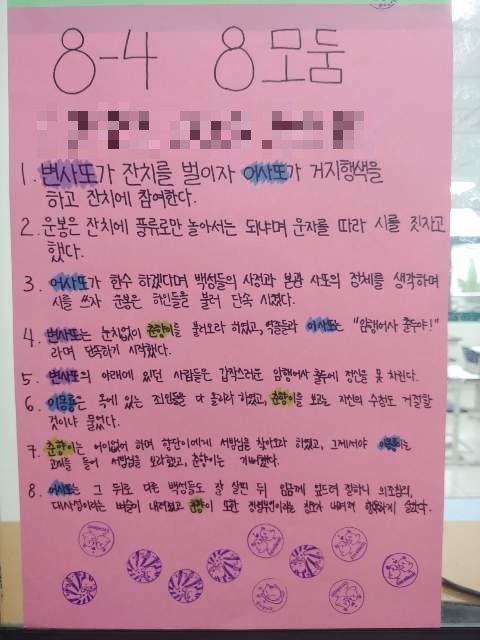 8-4 8모둠
1. 변사또가 잔치를 벌이자 어사또가 거지행색을
하고 잔치에 참여한다.
2. 운봉은 잔치에 풍류로만 놀아서는 되냐며 운자를 따라 시를 짓자고
했다.
3. 어사또가 한수 하겠다며 백성들의 사정과 본관 사또의 정체를 생각하며
시를 쓰자 운봉은 하인들을 불러 단속 시켰다.
4. 변사또는 눈치없이 춘향이를 불러오라 하였고, 역졸들과 어사또는 "암행어사 출두야!"
라며 단속하기 시작했다.
5. 변사또의 아래에 있던 사람들은 갑작스러운 암행어사 출두에 정신을 못 차린다.
6. 이몽룡은 옥에 있는 죄인들을 다 올리라 하였고, 춘향이를 보고는 자신의 수청도 거절할
것이냐 물었다.
7. 춘향이는 어이없어 하며 향단이에게 서방님을 찾아오라 하였고, 그제서야 이몽룡은
고개를 들어 서방님을 보라했고, 춘향이는 기뻐했다.
8. 어사또는 그 뒤로 다른 백성들도 잘 살핀 뒤 임금께 엎드려 절하니
대사성이라는 벼슬이 내려졌고 춘향이 또한 정렬부인이라는 내려져 행복하게 살았다.